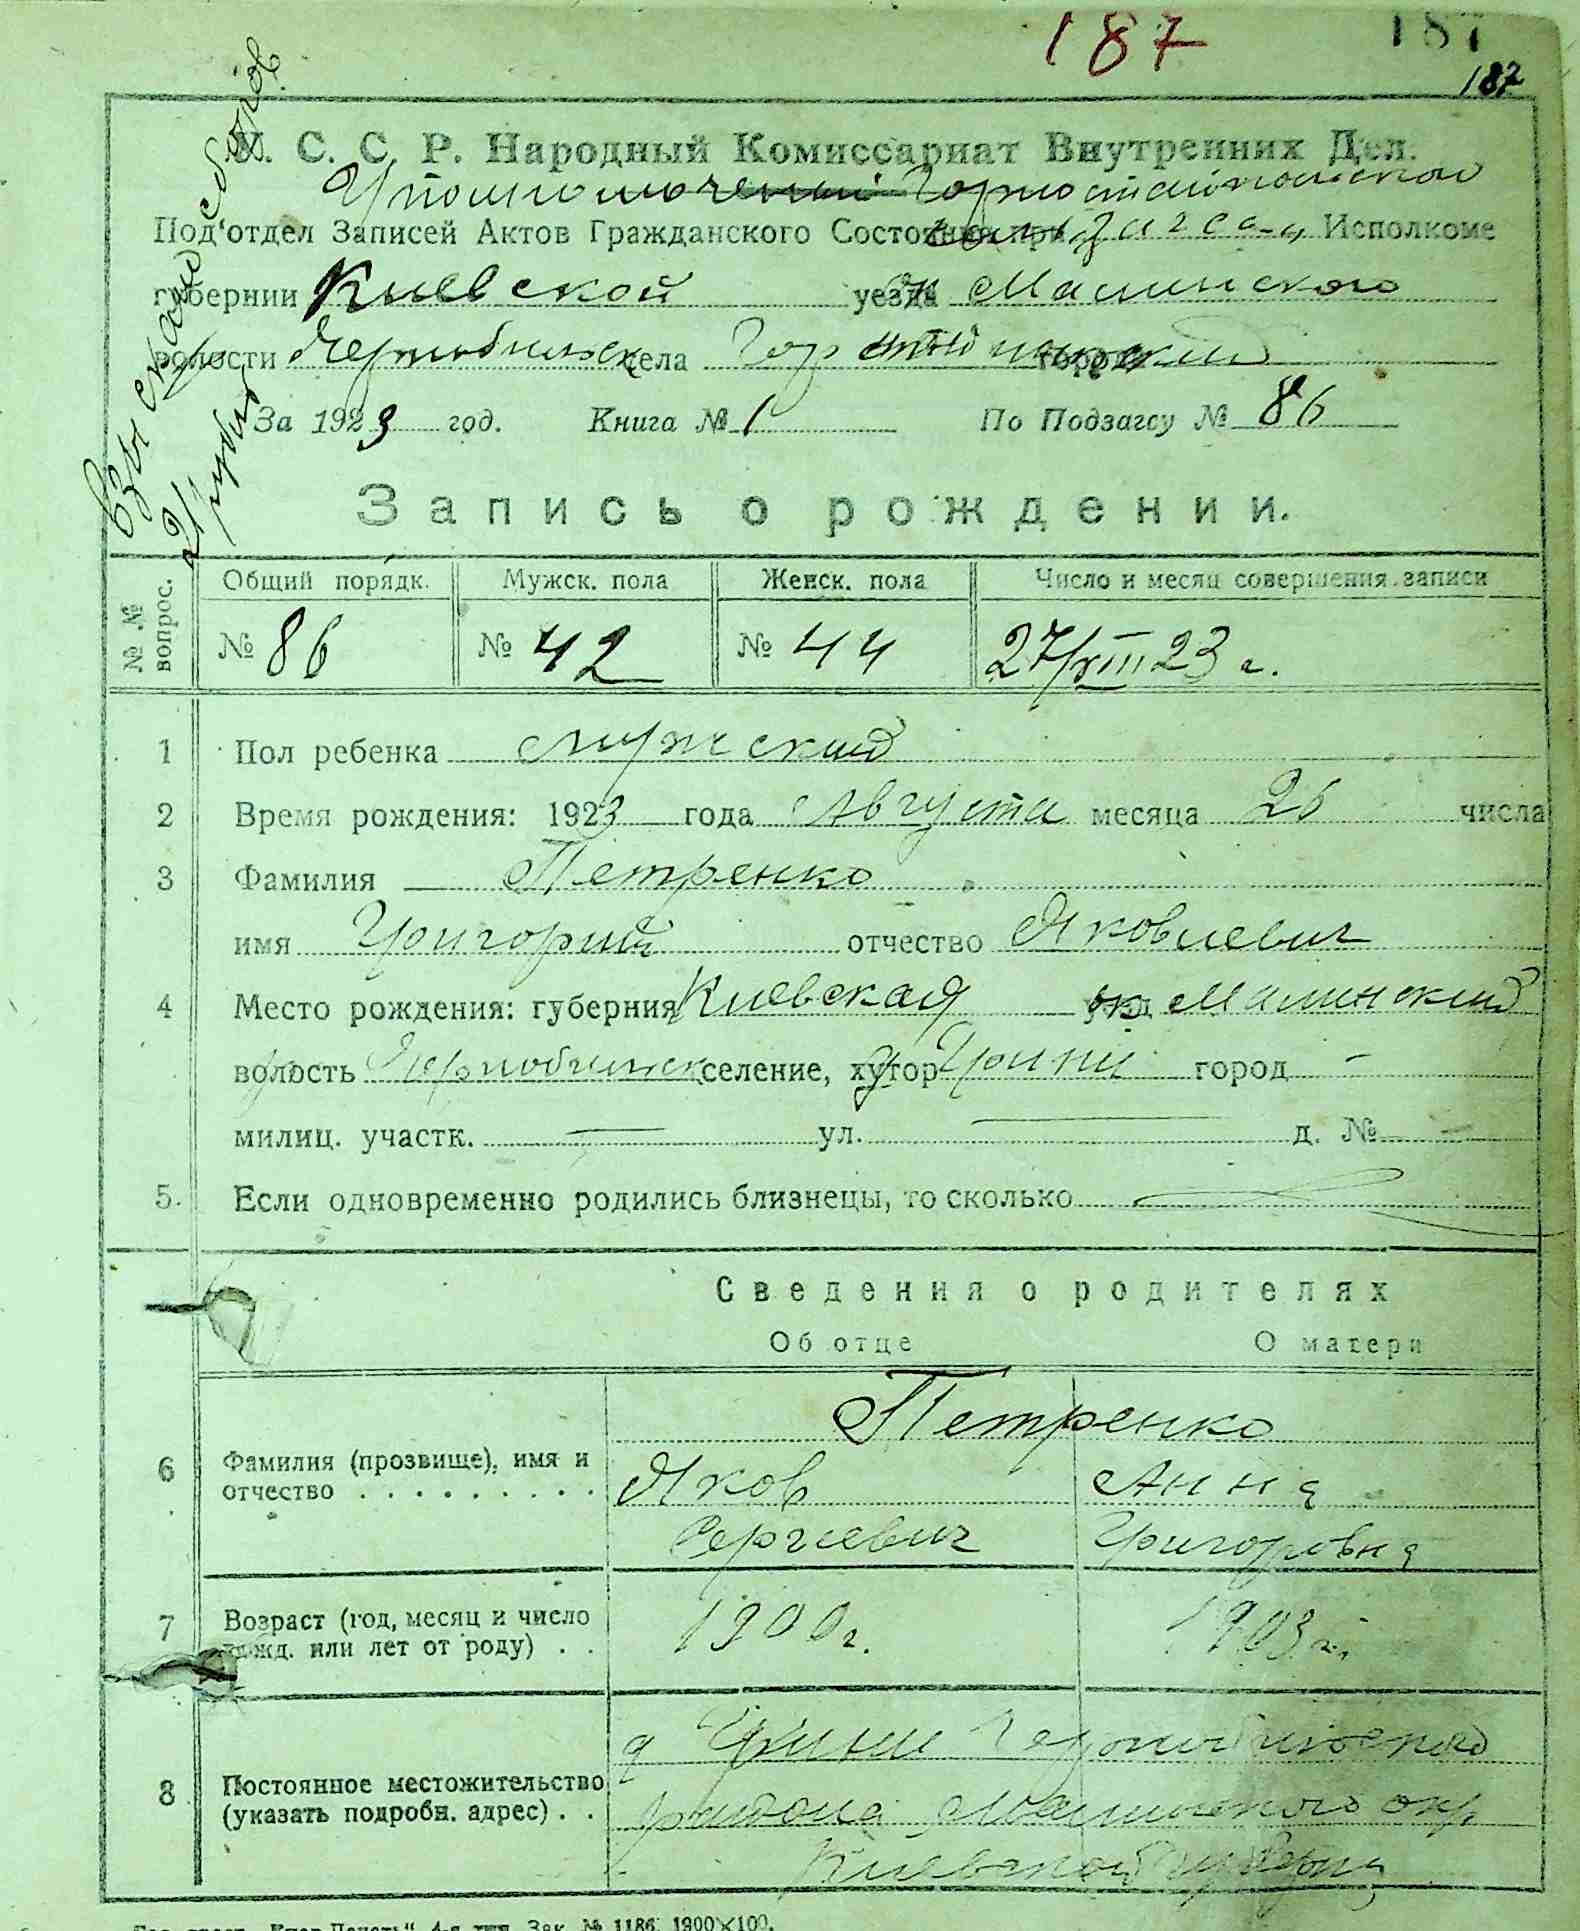 187 187
187
У. С. С. Р. Народный Комиссариат Внутренних Дел.
Под'отдел Записей Актов Гражданского Состояния при Исполкоме
губернии Киевской уезда Малинского
волости села
За 1923 год. Книга № 1 По Подзагсу № 86
Взыскано сборов
2 рубл
Запись о рождении.
№ № вопрос.
Общий порядк. Мужск. пола Женск. пола Число и месяц совершения записи
№ 86 № 42 № 44 27/VIII 23 г.
1 Пол ребенка мужской
2 Время рождения: 1923 года Августа месяца 26 числа
3 Фамилия Петренко
имя Григорий отчество Яковлевич
4 Место рождения: губерния Киевская Малинский
волость селение, хутор город -
милиц. участк. — ул. — д. № -
5. Если одновременно родились близнецы, то сколько —
Сведения о родителях
Об отце О матери
Петренко
6 Фамилия (прозвище), имя и Яков Анна
отчество . . . . . . . . . Сергеевич Григоровна
7 Возраст (год, месяц и число 1900 г. 1903 г.
рожд. или лет от роду) . .
8 Постоянное местожительство
(указать подробн. адрес) . . района Малинского окр.
Киевской губернии
4-я тип. Зак. № 1186. 1900×100.